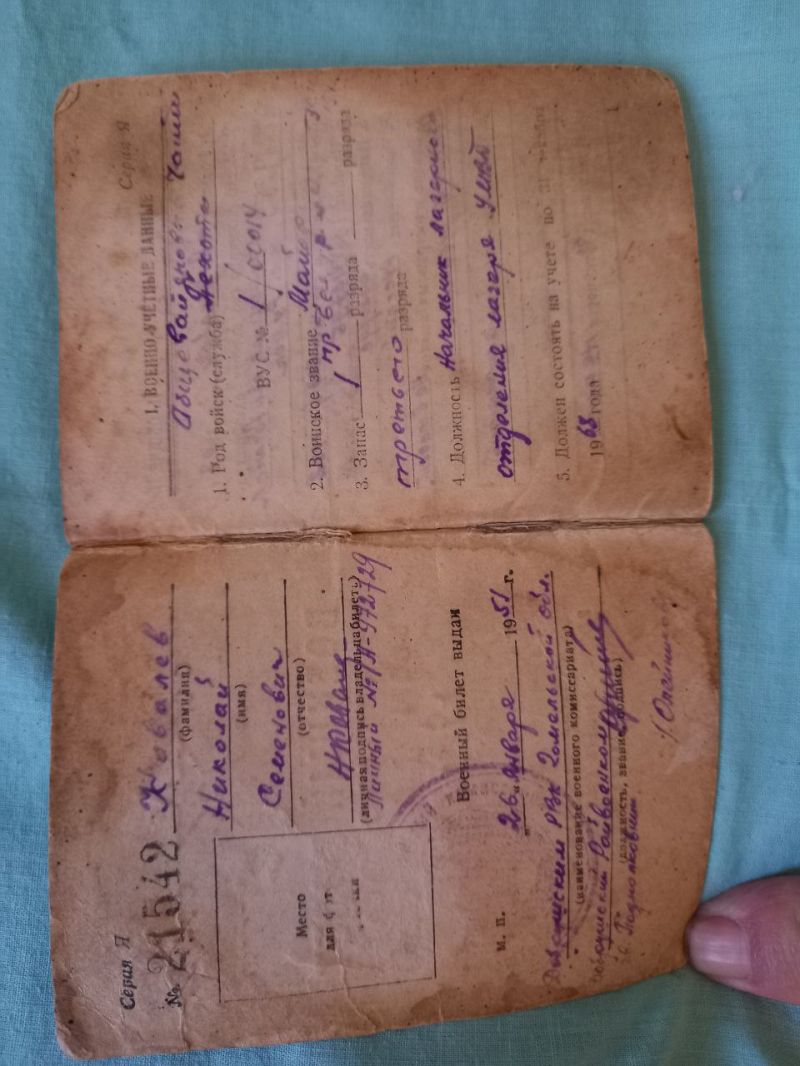 Серия Я
№ 21542
Ковалев
(фамилия)
Николай
(имя)
Семенович
(отчество)
Место
для
(личная подпись владельца билета)
Личный № 1А-972729
Военный билет выдан
м. п.
„26„ января 1951 г.
РВК Гомельской обл.
(наименование военного комиссариата)
Райвоенком
(должность, звание, подпись)
Подполковник
Серия Я
1. ВОЕННО-УЧЕТНЫЕ ДАННЫЕ
Пехота
1. Род войск (служба)
ВУС. №
2. Воинское звание
3. Запас 1 разряда разряда
третьего разряда
4. Должность Начальник лагерного
отделения лагеря
5. Должен состоять на учете по
1968 года